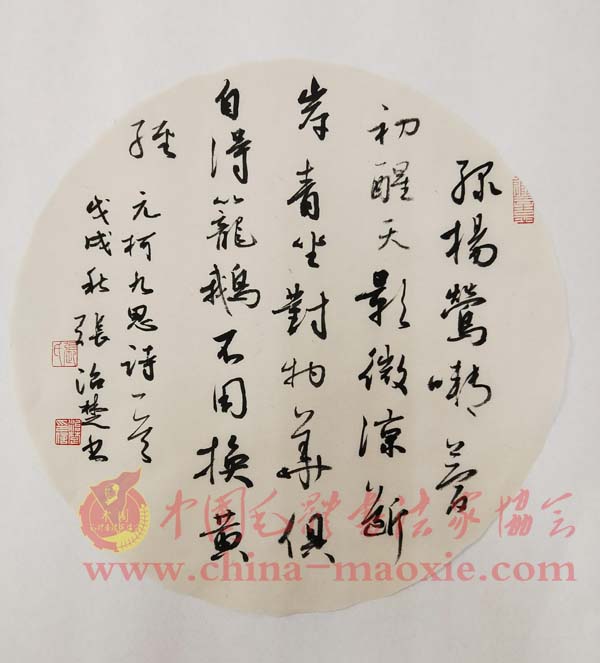 绿楊鶯夢
初醒天影微涼斷
岸青坐對物華俱
自得籠鵝不用換黄
經
元柯九思詩一首
戊戌秋張治楚书
中国毛體书法家協会
www.china-maoxie.com